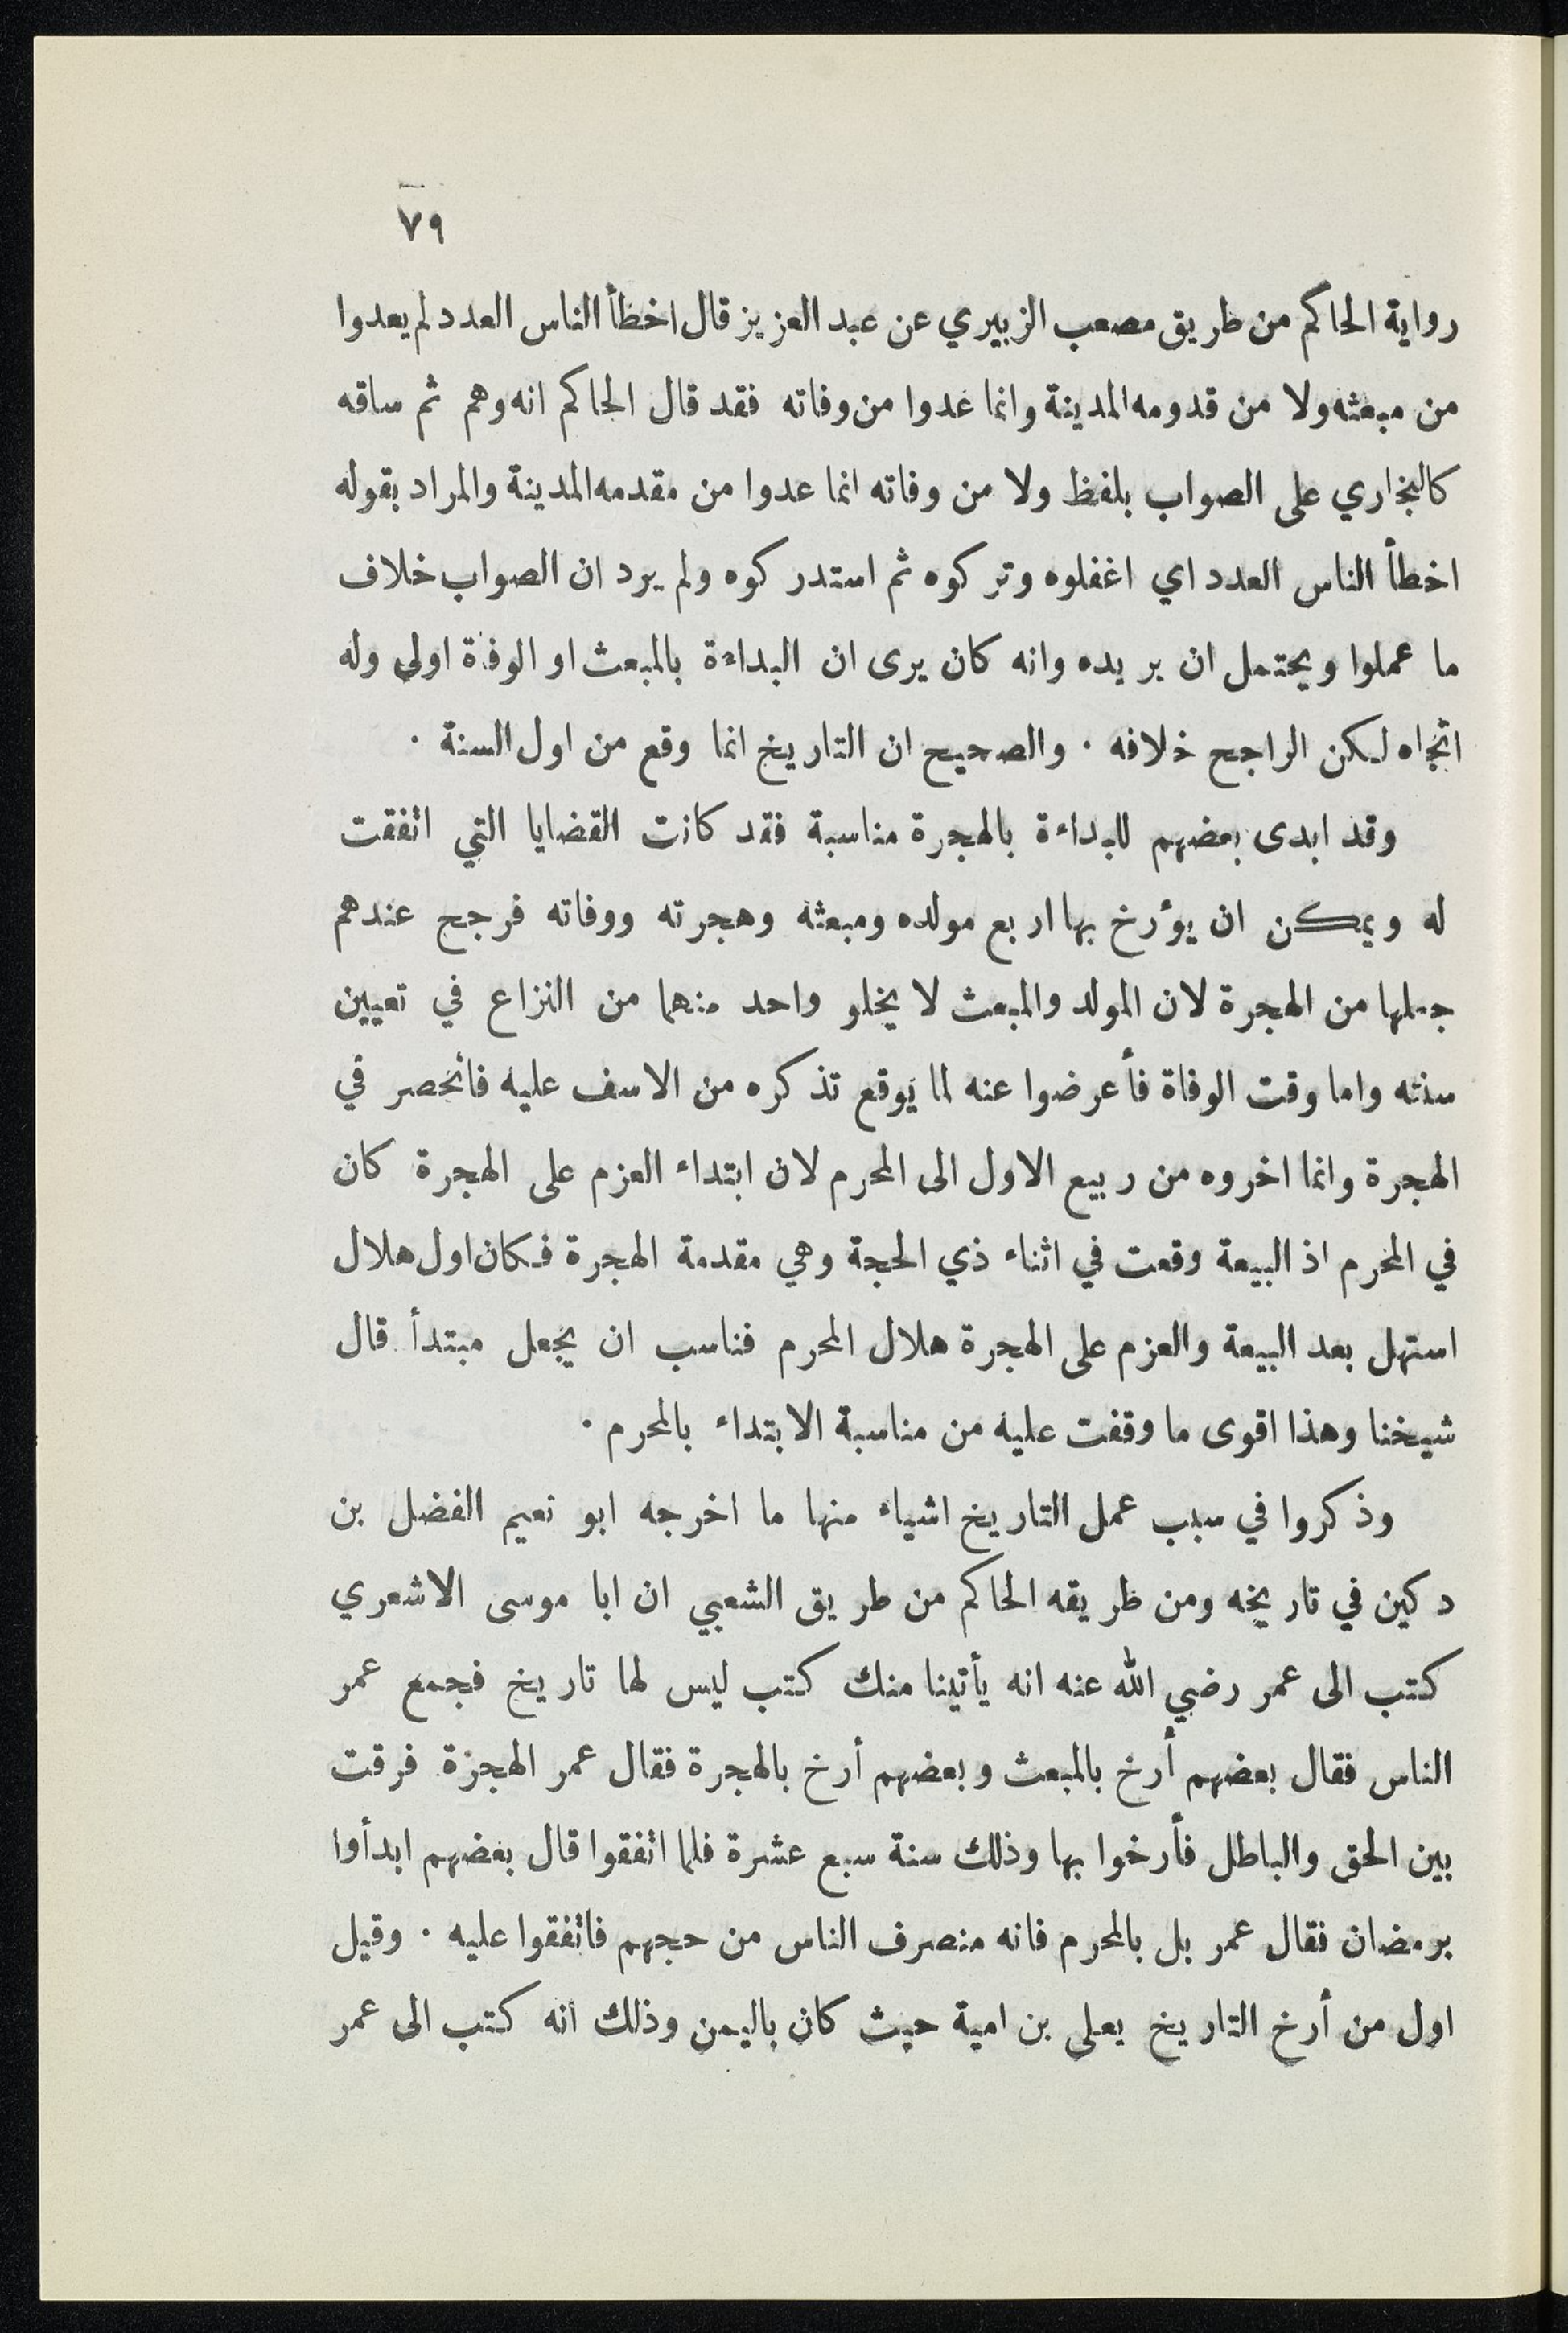 ٧٩
رواية الحاكم من طريق مصعب الزبيري عن عبد العزيز قال اخطأ الناس العدد لم يعدوا
من مبعثه ولا من قدومه المدينة وانما عدوا من وفاته فقد قال الحاكم انه وهم ثم ساقه
كالبخاري على الصواب بلفظ ولا من وفاته انما عدوا من مقدمه المدينة والمراد بقوله
اخطأ الناس العدد اي اغفلوه وتركوه ثم استدركوه ولم يرد ان الصواب خلاف
ما عملوا ويحتمل ان يريده وانه كان يرى ان البداءة بالمبعث او الوفاة اولى وله
اتجاه لكن الراجح خلافه . والصحيح ان التاريخ انما وقع من اول السنة .
وقد ابدى بعضهم للبداءة بالهجرة مناسبة فقد كانت القضايا التي اتفقت
له ويمكن ان يؤرخ بها اربع مولده ومبعثه وهجرته ووفاته فرجح عندهم
جعلها من الهجرة لان المولد والمبعث لا يخلو واحد منهما من النزاع في تعيين
سنته واما وقت الوفاة فأعرضوا عنه لما يوقع تذكره من الاسف عليه فانحصر في
الهجرة وانما اخروه من ربيع الاول الى المحرم لان ابتداء العزم على الهجرة كان
في المحرم اذ البيعة وقعت في اثناء ذي الحجة وهي مقدمة الهجرة فكان اول هلال
استهل بعد البيعة والعزم على الهجرة هلال المحرم فناسب ان يجعل مبتدأ قال
شيخنا وهذا اقوى ما وقفت عليه من مناسبة الابتداء بالمحرم .
وذكروا في سبب عمل التاريخ اشياء منها ما اخرجه ابو نعيم الفضل بن
دكين في تاريخه ومن طريقه الحاكم من طريق الشعبي ان ابا موسى الاشعري
كتب الى عمر رضي الله عنه انه يأتينا منك كتب ليس لها تاريخ فجمع عمر
الناس فقال بعضهم أرخ بالمبعث وبعضهم أرخ بالهجرة فقال عمر الهجرة فرقت
بين الحق والباطل فأرخوا بها وذلك سنة سبع عشرة فلما اتفقوا قال بعضهم ابدأوا
برمضان فقال عمر بل بالمحرم فانه منصرف الناس من حجهم فاتفقوا عليه . وقيل
اول من أرخ التاريخ يعلى بن امية حيث كان باليمن وذلك انه كتب الى عمر